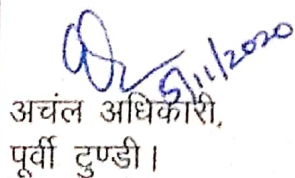 5/11/2020
अचंल अधिकारी,
पूर्वी टुण्डी।